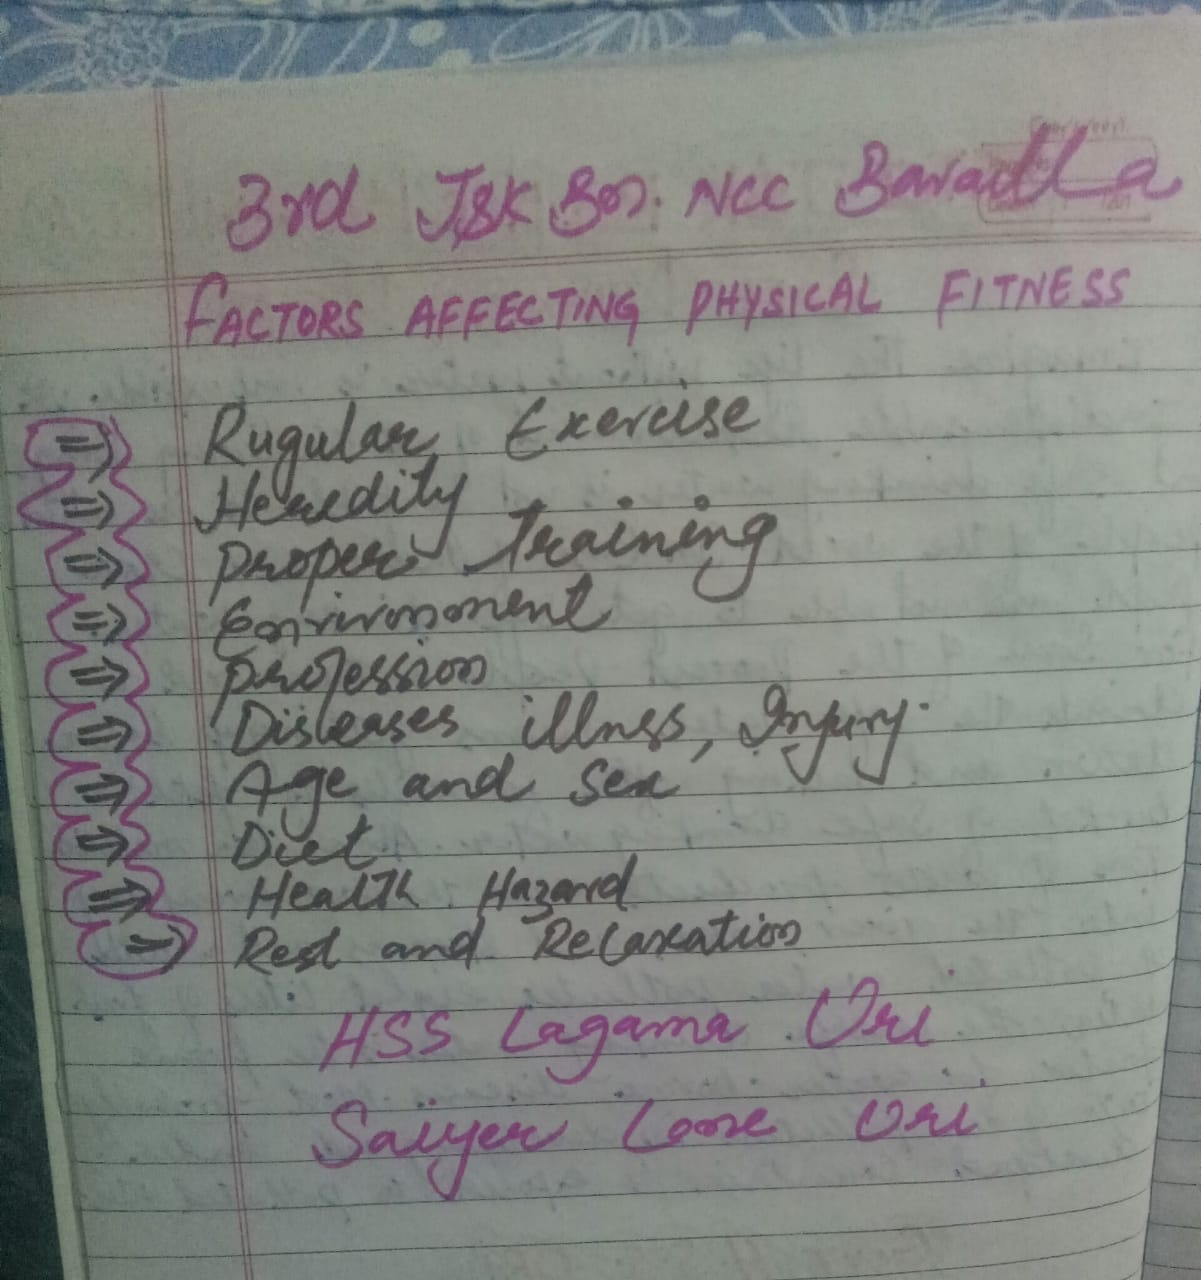 3rd J&K Bn. NCC
FACTORS AFFECTING PHYSICAL FITNESS
=> Rugular Exercise
=> Heredity
=> Proper Training
=> Environment
=> Profession
=> Diseases illness, Injury.
=> Age and Sex
=> Diet
=> Health Hazard
=> Rest and Relaxation
HSS Lagama Uri
Saiyer Lone Uri